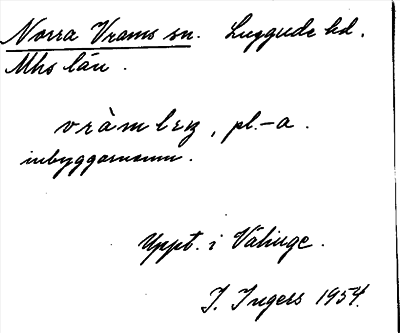 Norra Vrams sn. Luggude hd.
Mhs län.
vràmbɛʀ, pl. -a.
inbyggarnamn.
Uppt. i Välinge.
I. Ingers 1954.